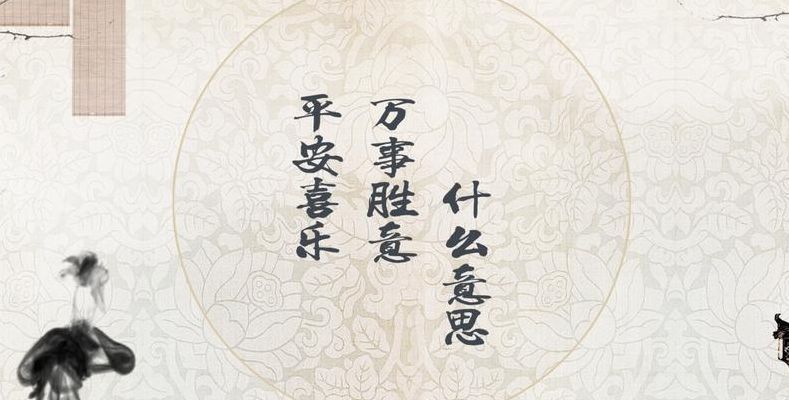 平安喜乐
万事胜意
什么意思